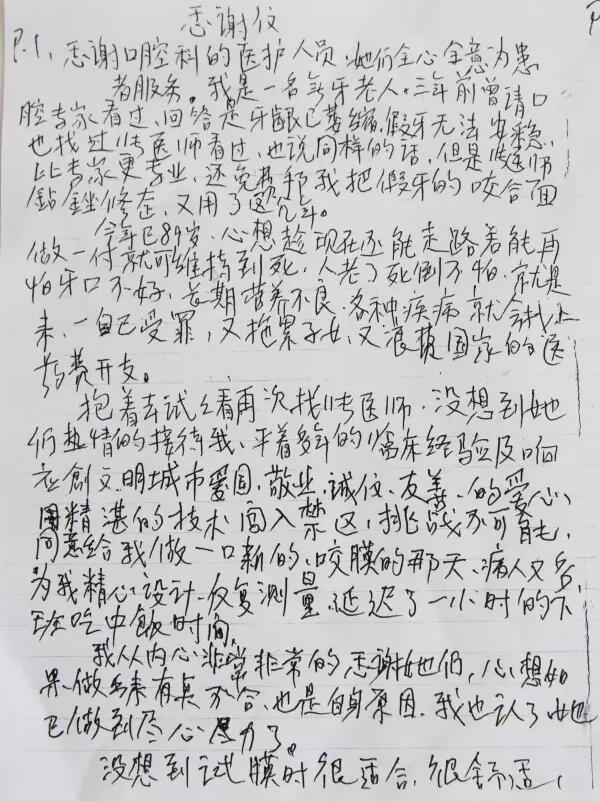 感谢信
P.1、感谢口腔科的医护人员,她们全心全意为患
者服务。我是一名无牙老人。三年前曾请口
腔专家看过,回答是牙龈已萎缩,假牙无法安稳,
也找过陆医师看过,也说同样的话,但是陆医师
比专家更专业,还免费帮我把假牙的咬合面
钻锉修整,又用了这几年。
今年已89岁,心想趁现在还能走路若能再
做一付就可维持到死,人老了死倒不怕,就是
怕牙口不好,长期营养不良,各种疾病就会找上
来,一自己受罪,又拖累子女,又浪费国家的医
药费开支。
抱着去试试看再次找陆医师,没想到她
们热情的接待我,平着多年的临床经验及响
应创文明城市爱国、敬业、诚信、友善、的爱心,
用精湛的技术闯入禁区,挑战不可能,
同意给我做一口新的,咬膜的那天、病人又多,
为我精心设计、反复测量、延迟了一小时的下
班吃中飯时间。
我从内心非常非常的感谢她们,心想如
果做出来有点不合,也是自身原因,我也认了她
已做到尽心尽力了。
没想到试膜时很适合,很舒适,